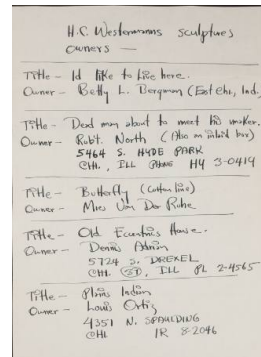 H.C. Westermanns sculptures
Owners —
Title — Id like to live here.
Owner — Betty L. Bergman (East Chi, Ind.
Title — Dead man about to meet his maker.
Owner — Rob't. North (Also an inlaid box)
5464 S. HYDE PARK
CHI., ILL PHONE HY 3-0414
Title — Butterfly
Owner — Mies Van Der Rohe
Title — Old Eccentrics House.
Owner — Dennis Adrian
5724 S. DREXEL
CHI. ILL PL 2-4565
Title — Plains Indian
Owner — Louis Ortiz
4351 N. SPAULDING
CHI. IR 8-2046